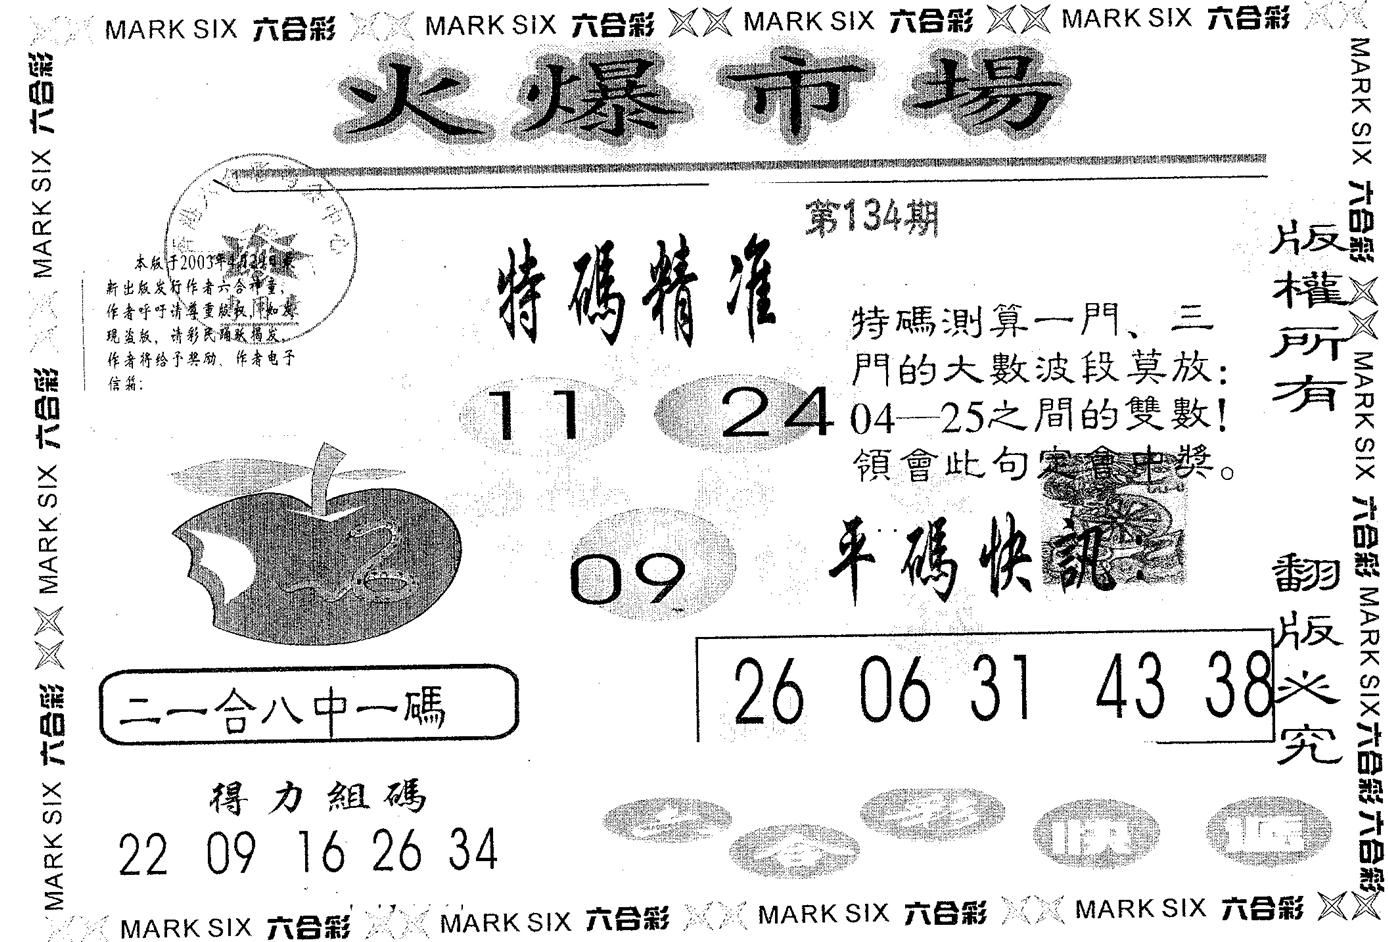 MARK SIX 六合彩 MARK SIX 六合彩 MARK SIX 六合彩 MARK SIX 六合彩
火爆市場
第134期
特碼精准
本版于2003年4月24日更
新出版发行作者六合神童,
作者呼吁请尊重版权,如发
现盗版,请彩民踊跃揭发,
作者将给予奖励,作者电子
信箱:
特碼測算一門、三
門的大數波段莫放:
04—25之間的雙數!
領會此句定會中獎。
11 24
09
平碼快訊:
26 06 31 43 38
二一合八中一碼
得力組碼
22 09 16 26 34
六合彩快遞
版權所有
翻版必究
MARK SIX 六合彩 MARK SIX 六合彩 MARK SIX 六合彩
MARK SIX 六合彩 MARK SIX 六合彩 MARK SIX 六合彩 六合彩
MARK SIX 六合彩 MARK SIX 六合彩 MARK SIX 六合彩 MARK SIX 六合彩